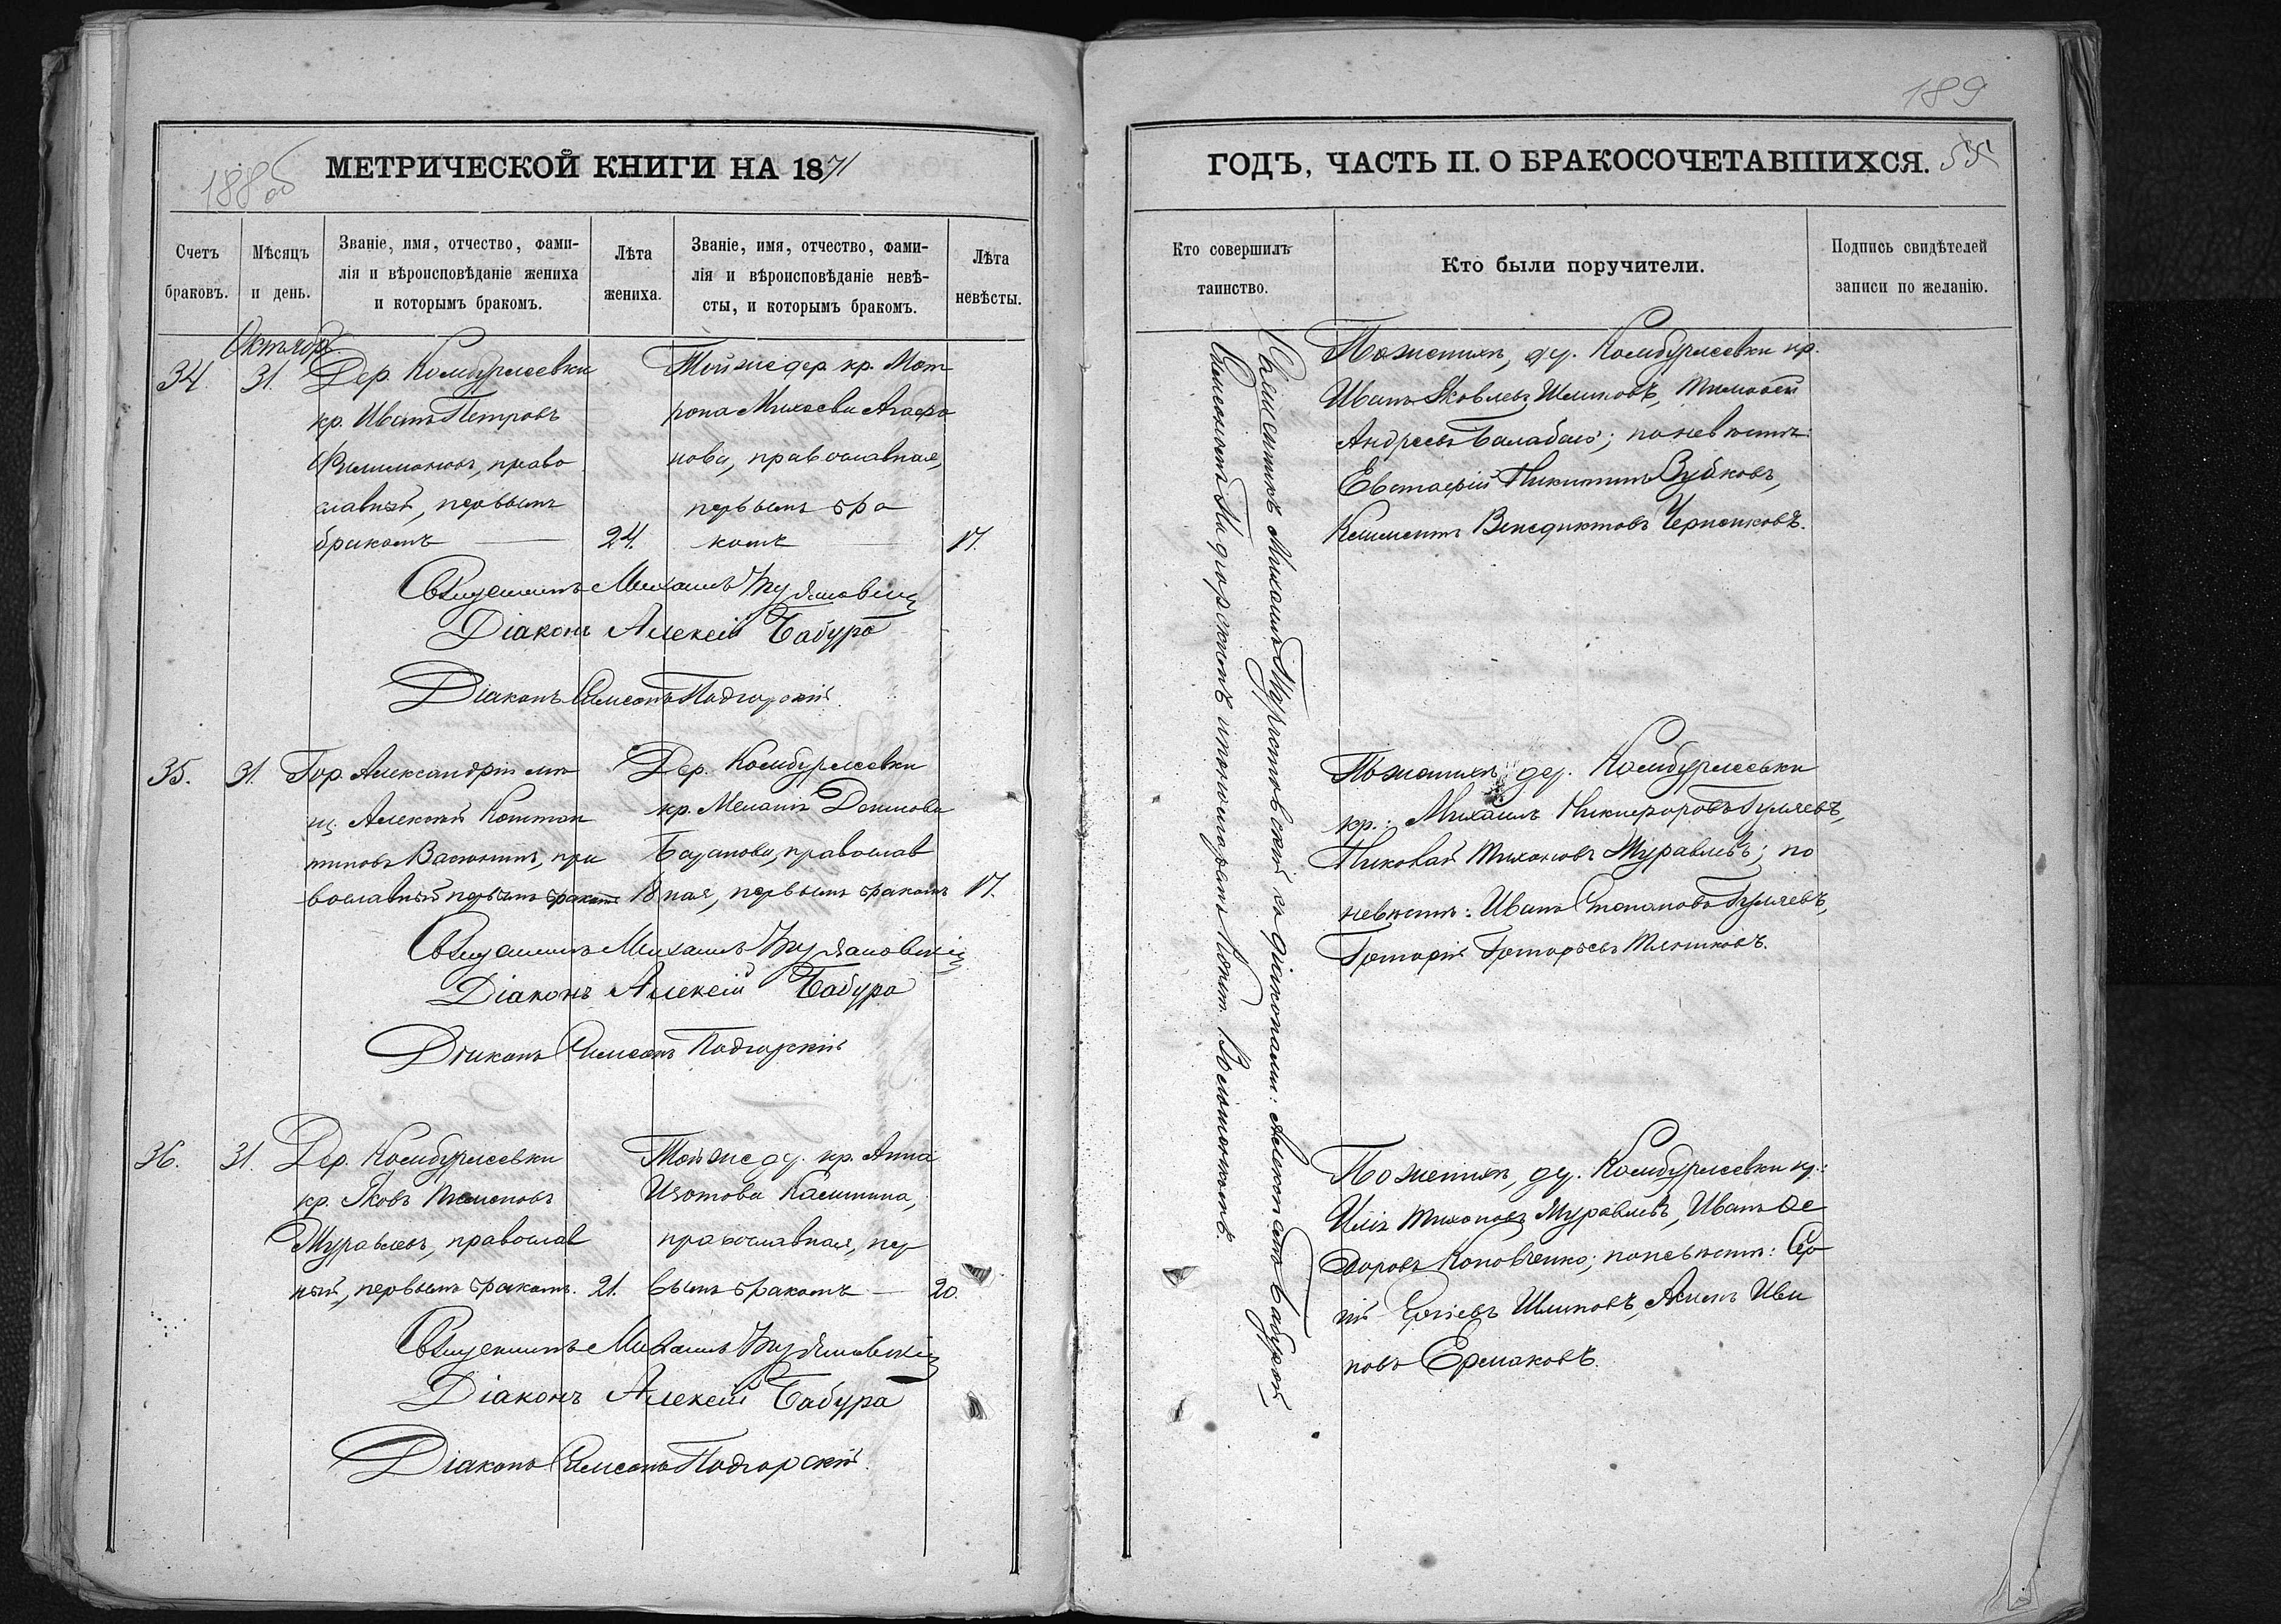 188об
МЕТРИЧЕСКОЙ КНИГИ НА 1871
Счетъ браковъ.
Мѣсяцъ и день.
Званіе, имя, отчество, фами-
лія и вѣроисповѣданіе жениха
и которымъ бракомъ.
Лѣта жениха.
Званіе, имя, отчество, фами-
лія и вѣроисповѣданіе невѣ-
сты, и которымъ бракомъ.
Лѣта невѣсты.
Октябр.
34. 31.
Дер. Комбурлеевки
кр. Иванъ Петровъ
Филимоновъ, право
славный, первымъ
бракомъ 24.
Той же дер. кр. Мот
рона Михеева Агафо
нова, православная,
первымъ бра
комъ 17.
Священникъ Михаилъ
Діаконъ Алексій Бабура
Діаконъ Симеонъ Подгорскій
35. 31.
Гор. Александріи мѣ
щ. Алексѣй Констан
тиновъ Васюнинъ, пра
вославный первымъ бракомъ 18
Дер. Комбурлеевки
кр. Меланія
православ
ная, первымъ бракомъ 17.
Священникъ Михаилъ
Діаконъ Алексій Бабура
Діаконъ Симеонъ Подгорскій
36. 31.
Дер. Комбурлеевки
кр. Яковъ
Журавлевъ, православ
ный, первымъ бракомъ. 21.
Той же де. кр. Анна
Изотова Калинина,
православная, пер
вымъ бракомъ 20.
Священникъ Михаилъ
Діаконъ Алексій Бабура
Діаконъ Симеонъ Подгорскій
189
ГОДЪ, ЧАСТЬ II. О БРАКОСОЧЕТАВШИХСЯ. 55
Кто совершилъ таинство.
Кто были поручители.
Подпись свидѣтелей
записи по желанію.
Священникъ Михаилъ съ діаконами: Алексѣемъ Бабурой
Симеономъ Подгорскимъ и пономаремъ
По женихѣ, де. Комбурлеевки кр.
Иванъ Яковлевъ Шлыковъ, Тимофей
Андреевъ Балабасъ; по невѣстѣ:
Евстафій Никитинъ Зубковъ,
Климентъ Венедиктовъ Черненковъ.
По женихѣ: де. Комбурлеевки
кр.: Михаилъ Никифоровъ Гуляевъ,
Николай Тихоновъ Журавлевъ; по
невѣстѣ: Иванъ Степановъ Гуляевъ,
Григорій Григорьевъ
По женихѣ, де. Комбурлеевки кр.:
Илія Тихоновъ Журавлевъ, Иванъ Ѳе
доровъ Коновченко; по невѣстѣ: Сер
гій Шлыковъ, Акимъ Ива
новъ Ермаковъ.